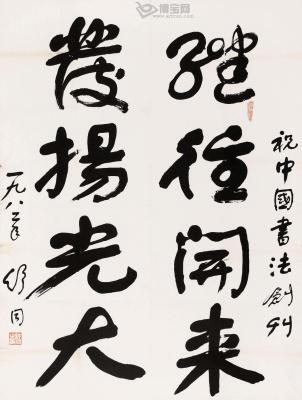 祝中國書法創刊
继往開来
發揚光大
一九八二年 舒同
博宝网
www.artxun.com